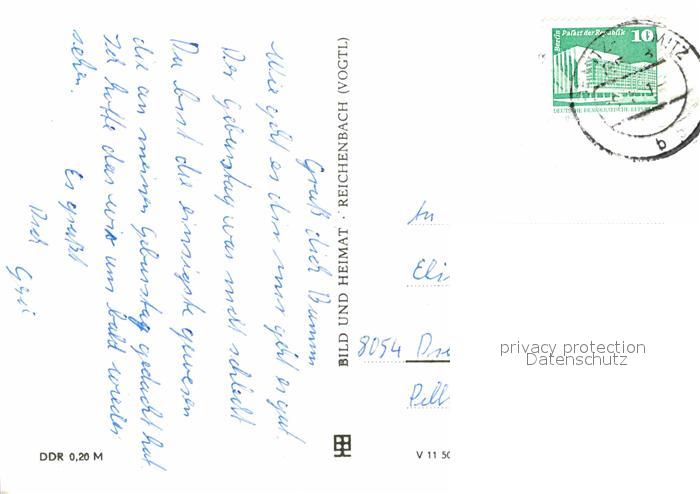 Gruß dich Bummi
Wie geht es dir mir geht es gut.
Der Geburtstag war nicht schlecht
Du bist die einzigste gewesen
die an meinen Geburtstag gedacht hat.
Ich hoffe das wir uns bald wieder
sehen.
Es grüßt
Dich
BILD UND HEIMAT · REICHENBACH (VOGTL)
DDR 0,20 M
V 11 50
Berlin Palast der Republik
10
DEUTSCHE DEMOKRATISCHE REPUBLIK
MITZ
b
An
Eli
8054 Dre
Pill
privacy protection
Datenschutz